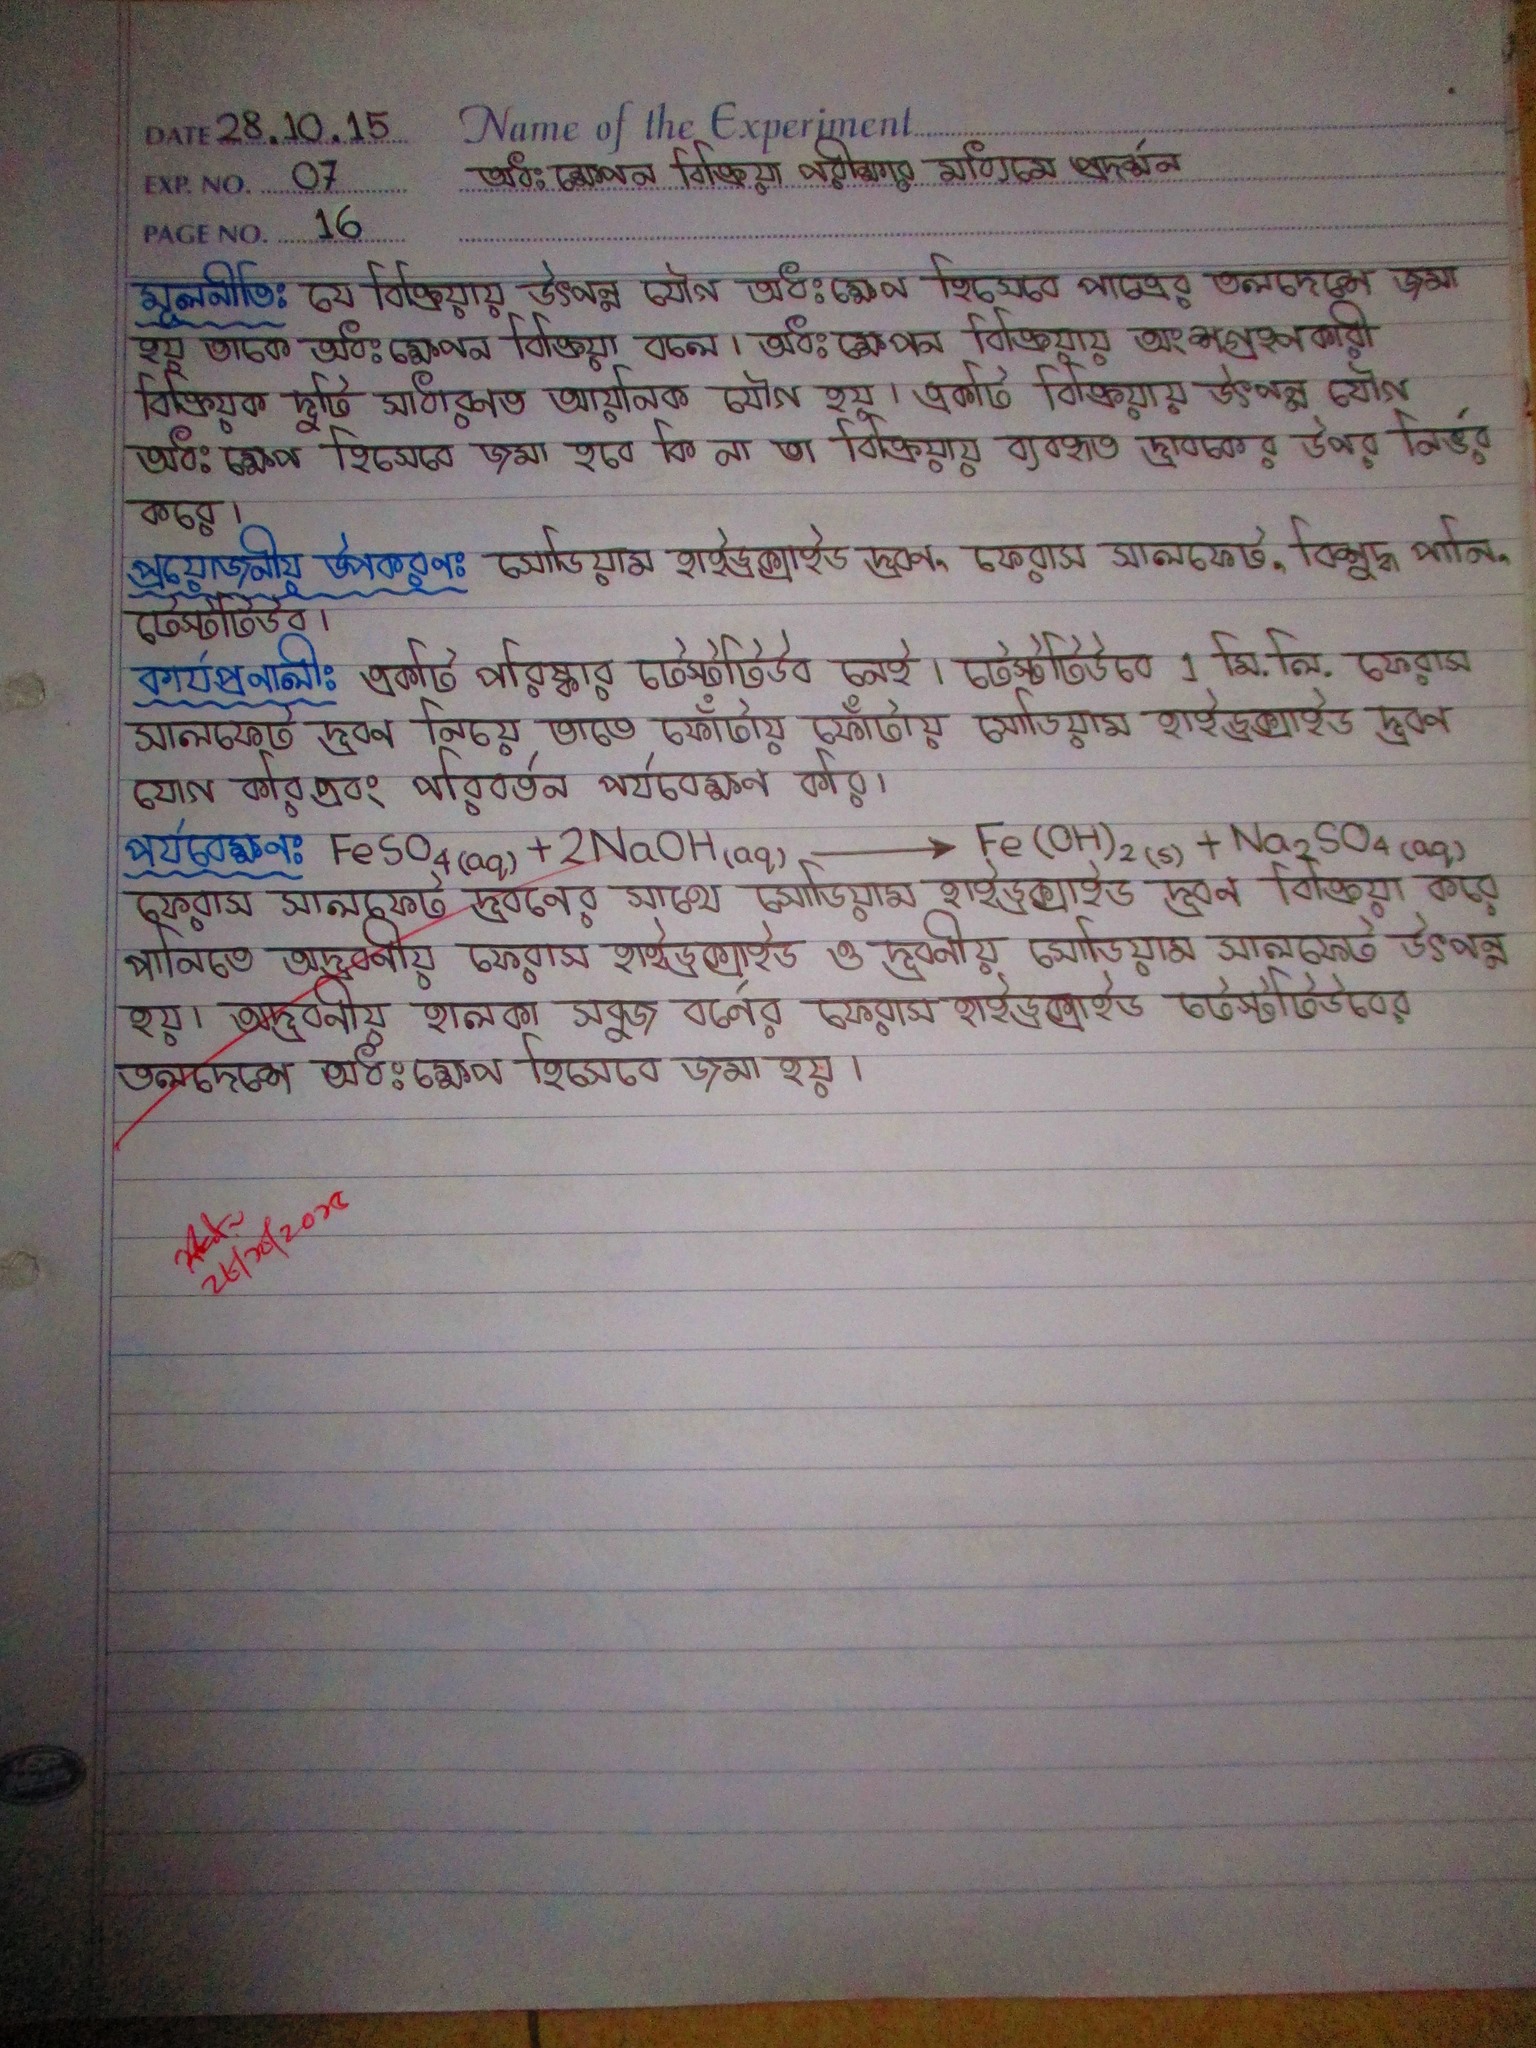 DATE 28.10.15 Name of the Experiment
EXP. NO. 07 অধঃক্ষেপন বিক্রিয়া পরীক্ষার মাধ্যমে প্রদর্শন
PAGE NO. 16
মূলনীতিঃ যে বিক্রিয়ায় উৎপন্ন যৌগ অধঃক্ষেপ হিসেবে পাত্রের তলদেশে জমা
হয় তাকে অধঃক্ষেপন বিক্রিয়া বলে। অধঃক্ষেপন বিক্রিয়ায় অংশগ্রহণকারী
বিক্রিয়ক দুটি সাধারণত আয়নিক যৌগ হয়। একটি বিক্রিয়ায় উৎপন্ন যৌগ
অধঃক্ষেপ হিসেবে জমা হবে কি না তা বিক্রিয়ায় ব্যবহৃত দ্রাবকের উপর নির্ভর
করে।
প্রয়োজনীয় উপকরণঃ সোডিয়াম হাইড্রক্সাইড দ্রবণ, ফেরাস সালফেট, বিশুদ্ধ পানি,
টেস্টটিউব।
কার্যপ্রণালীঃ একটি পরিষ্কার টেস্টটিউব নেই। টেস্টটিউবে 1 মি.লি. ফেরাস
সালফেট দ্রবণ নিয়ে তাতে ফোঁটায় ফোঁটায় সোডিয়াম হাইড্রক্সাইড দ্রবণ
যোগ করি এবং পরিবর্তন পর্যবেক্ষণ করি।
পর্যবেক্ষণঃ FeSO₄(aq) + 2NaOH(aq) ⟶ Fe(OH)₂(s) + Na₂SO₄(aq)
ফেরাস সালফেট দ্রবণের সাথে সোডিয়াম হাইড্রক্সাইড দ্রবণ বিক্রিয়া করে
পানিতে অদ্রবনীয় ফেরাস হাইড্রক্সাইড ও দ্রবনীয় সোডিয়াম সালফেট উৎপন্ন
হয়। অদ্রবনীয় হালকা সবুজ বর্নের ফেরাস হাইড্রক্সাইড টেস্টটিউবের
তলদেশে অধঃক্ষেপ হিসেবে জমা হয়।